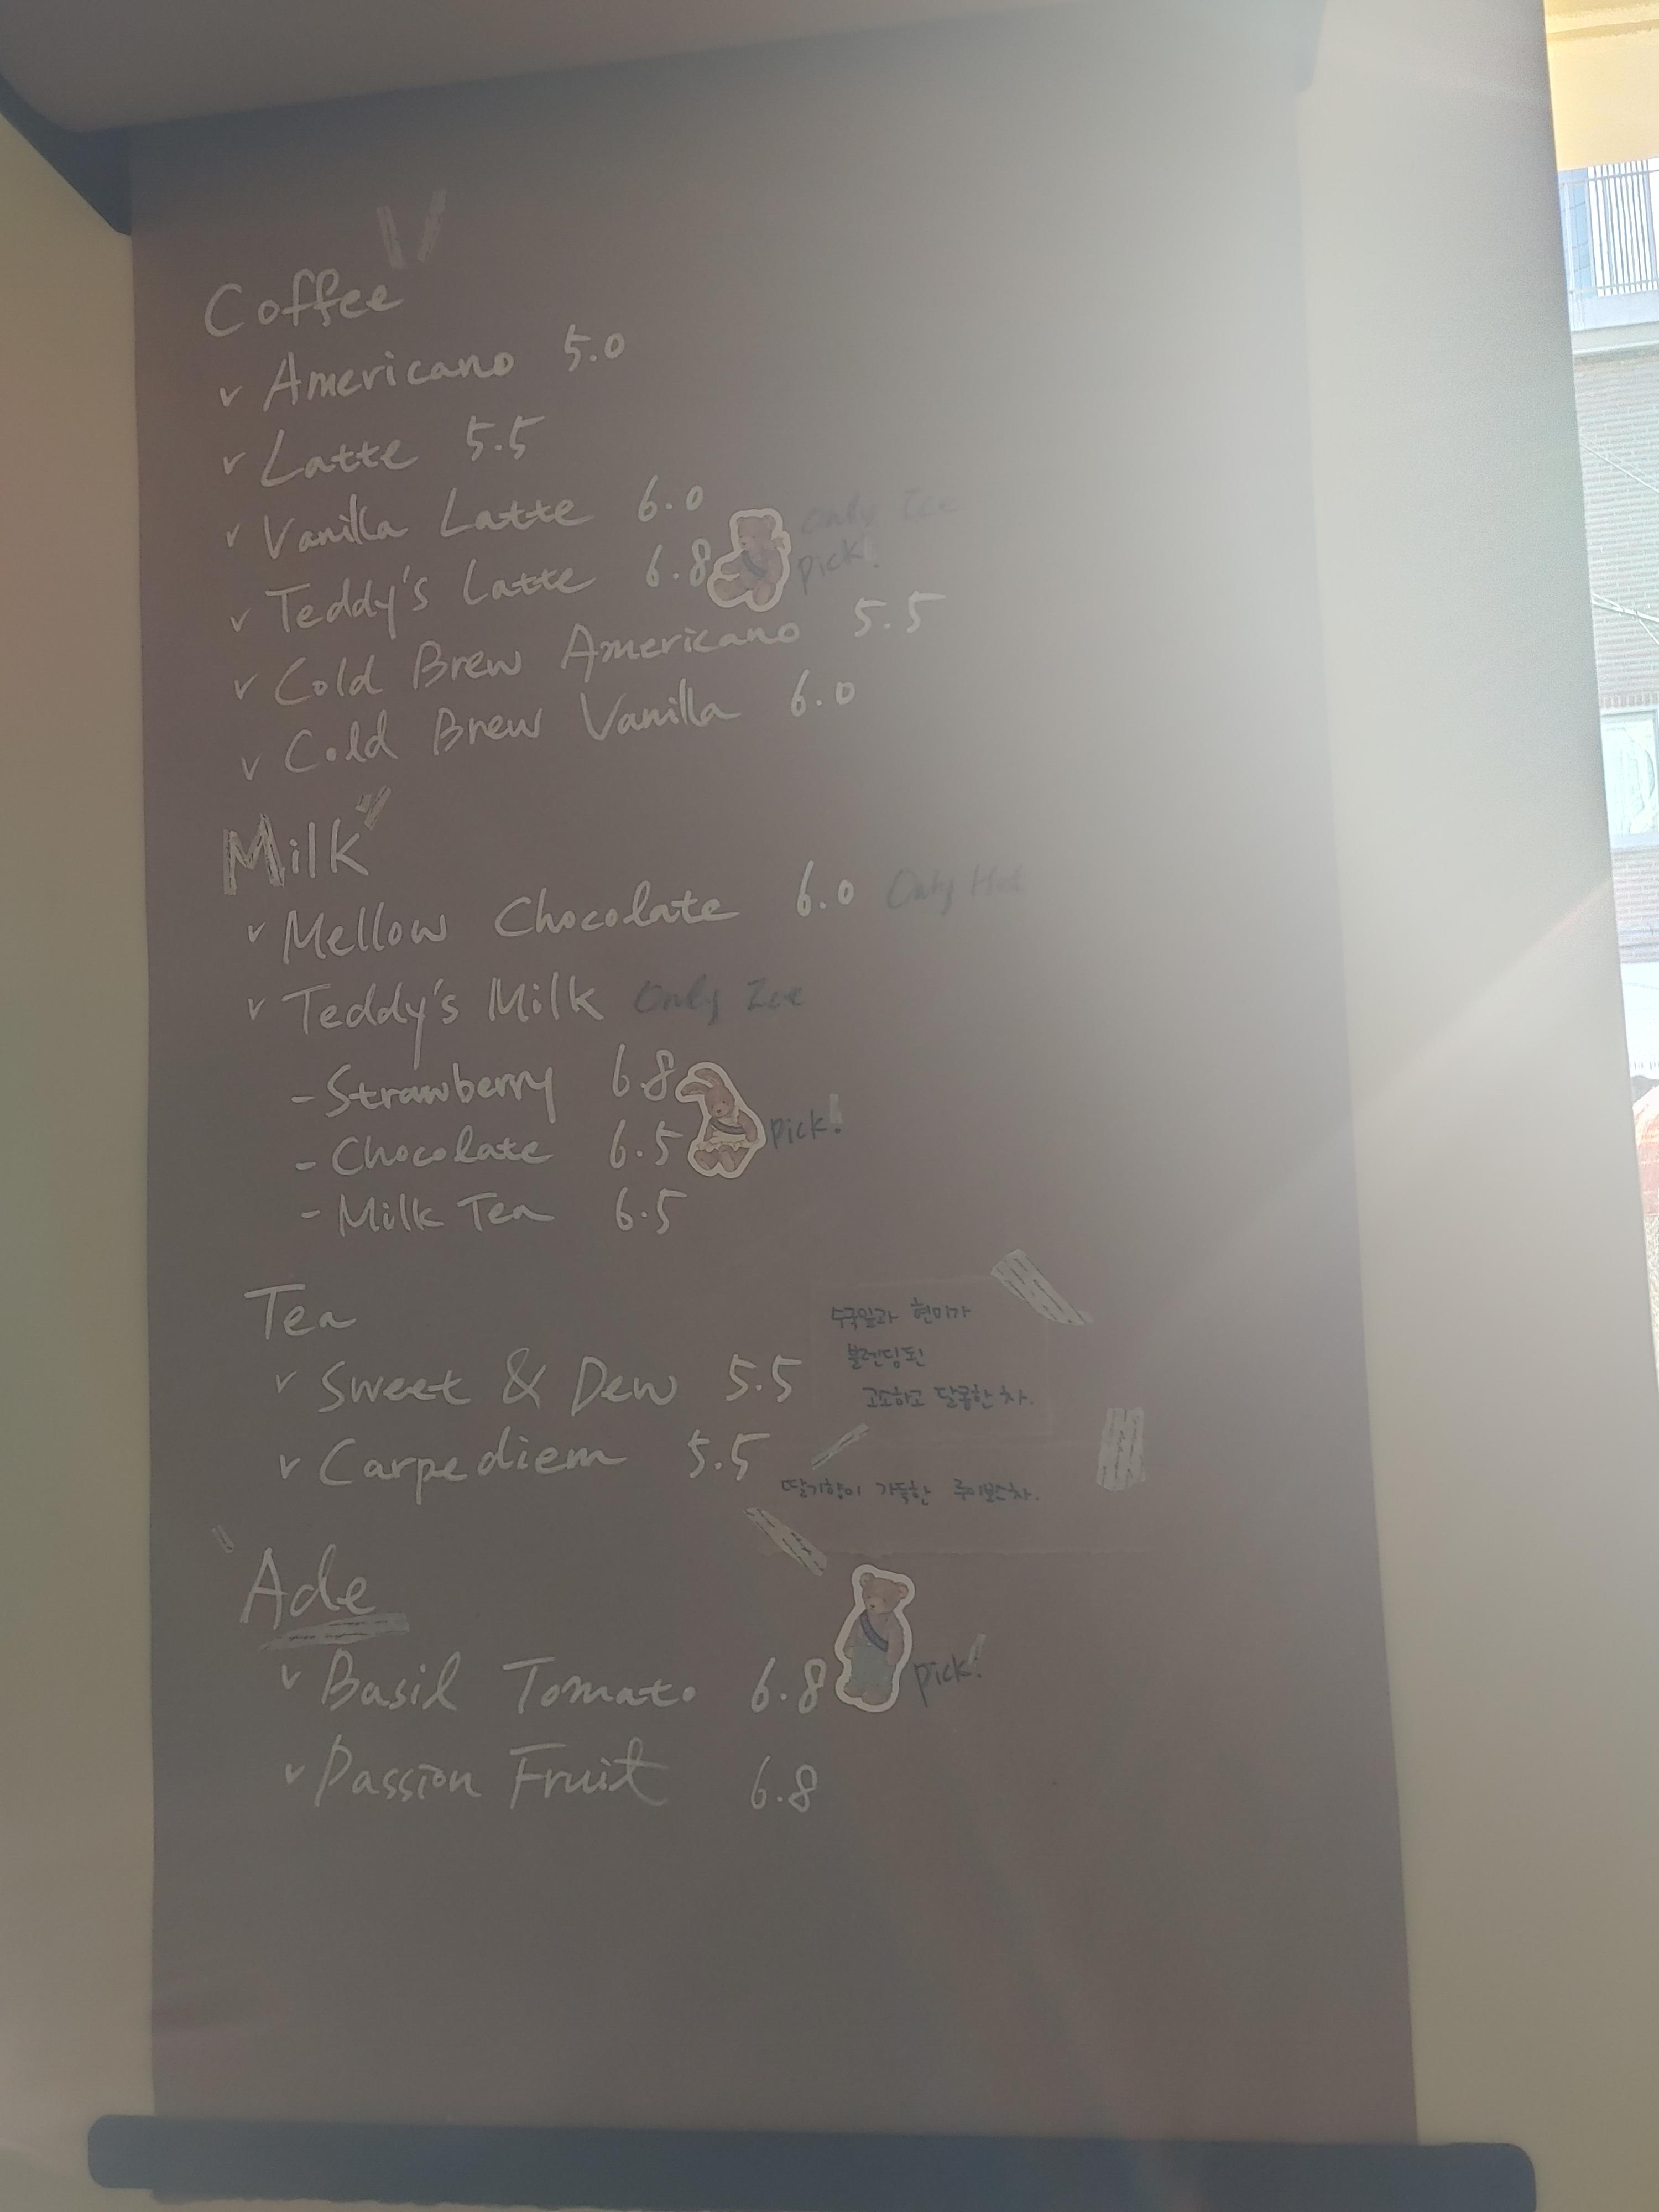 Coffee
v Americano 5.0
v Latte 5.5
v Vanilla Latte 6.0
Only Ice
v Teddy's Latte 6.8 pick!
v Cold Brew Americano 5.5
v Cold Brew Vanilla 6.0
Milk
v Mellow Chocolate 6.0 Only Hot
v Teddy's Milk Only Ice
- Strawberry 6.8
- Chocolate 6.5 pick!
- Milk Tea 6.5
Tea
수국잎과 현미가
블렌딩된
v Sweet & Dew 5.5 고소하고 달콤한 차.
v Carpediem 5.5
딸기향이 가득한 루이보스차.
Ade
v Basil Tomato 6.8 pick!
v Passion Fruit 6.8